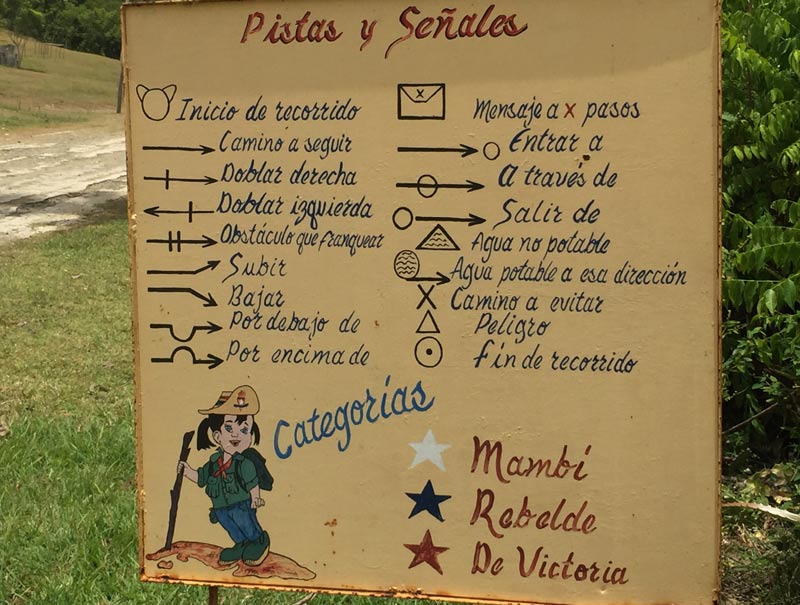 Pistas y Señales
Inicio de recorrido
Camino a seguir
Doblar derecha
Doblar izquierda
Obstáculo que franquear
Subir
Bajar
Por debajo de
Por encima de
x
Mensaje a x pasos
Entrar a
A través de
Salir de
Agua no potable
Agua potable a esa dirección
Camino a evitar
Peligro
Fin de recorrido
Categorías
Mambí
Rebelde
De Victoria